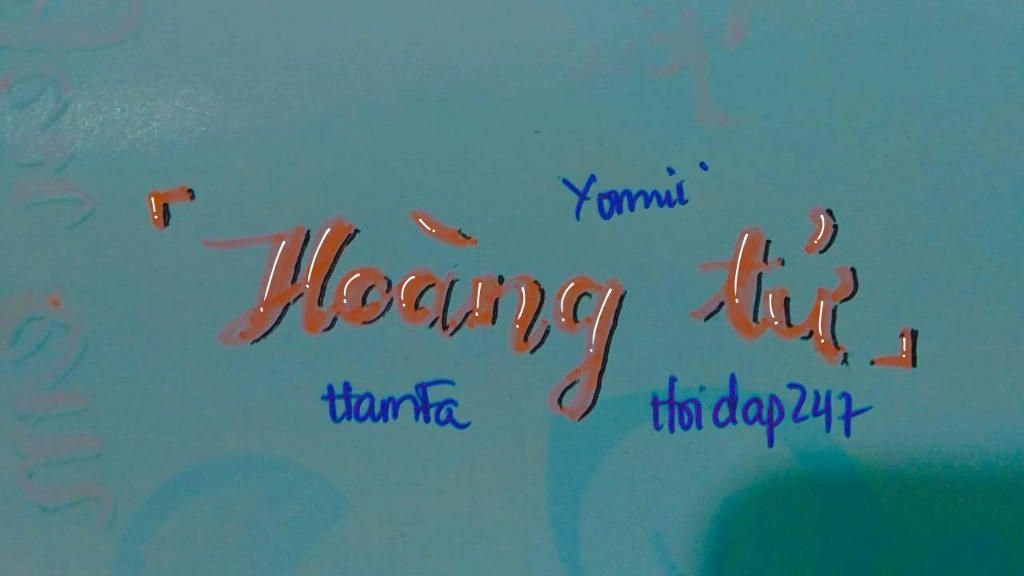 Yonmii
「Hoàng tử」
HamFa Hoidap247